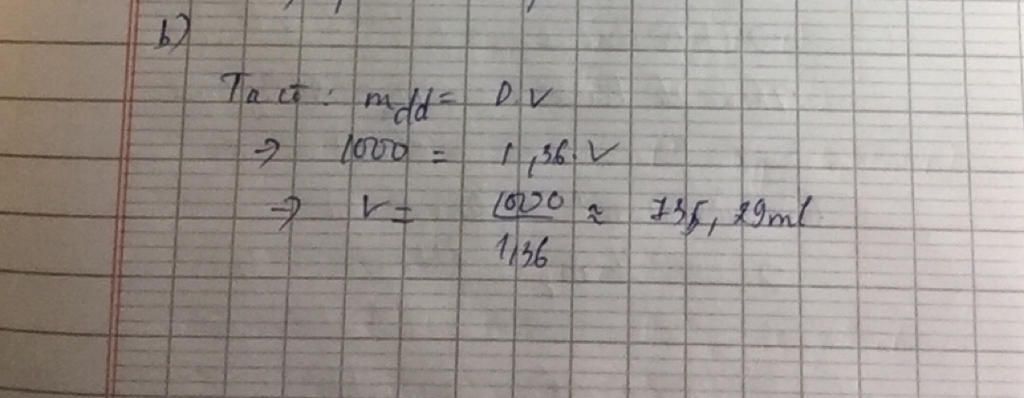 b)
Ta có: mdd = D.V
=> 1000 = 1,36.V
=> V = 1000/1,36 ≈ 735,29ml